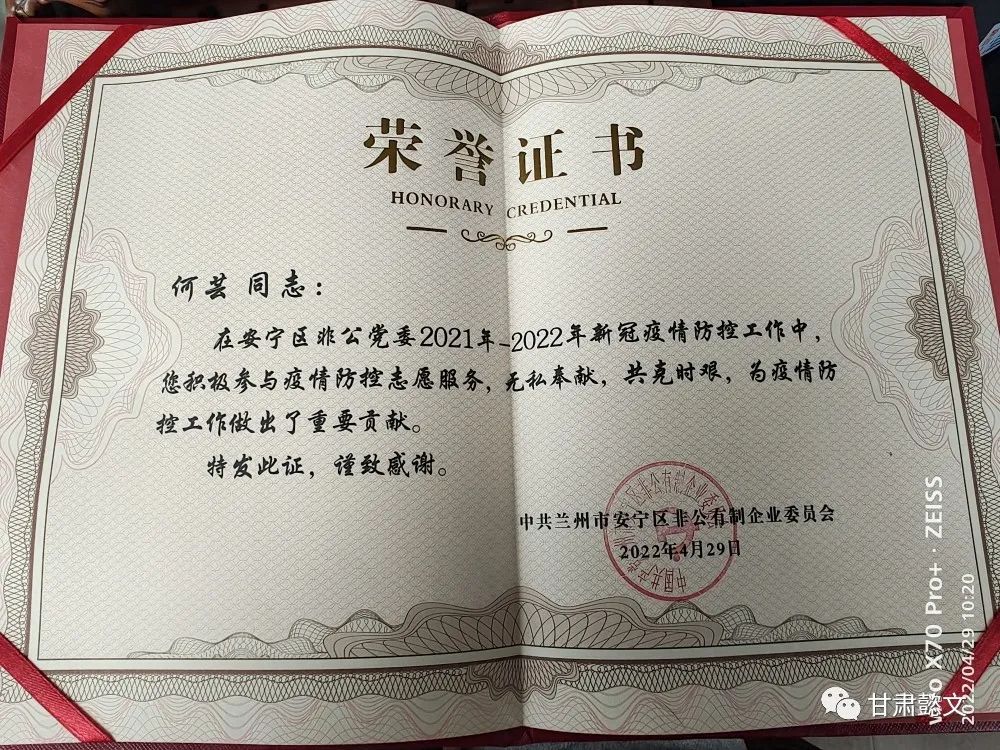 荣誉证书
HONORARY CREDENTIAL
何芸 同志：
在安宁区非公党委2021年-2022年新冠疫情防控工作中，
您积极参与疫情防控志愿服务，无私奉献，共克时艰，为疫情防
控工作做出了重要贡献。
特发此证，谨致感谢。
中共兰州市安宁区非公有制企业委员会
2022年4月29日
vivo X70 Pro+ · ZEISS
2022/04/29 10:20
甘肃懿文